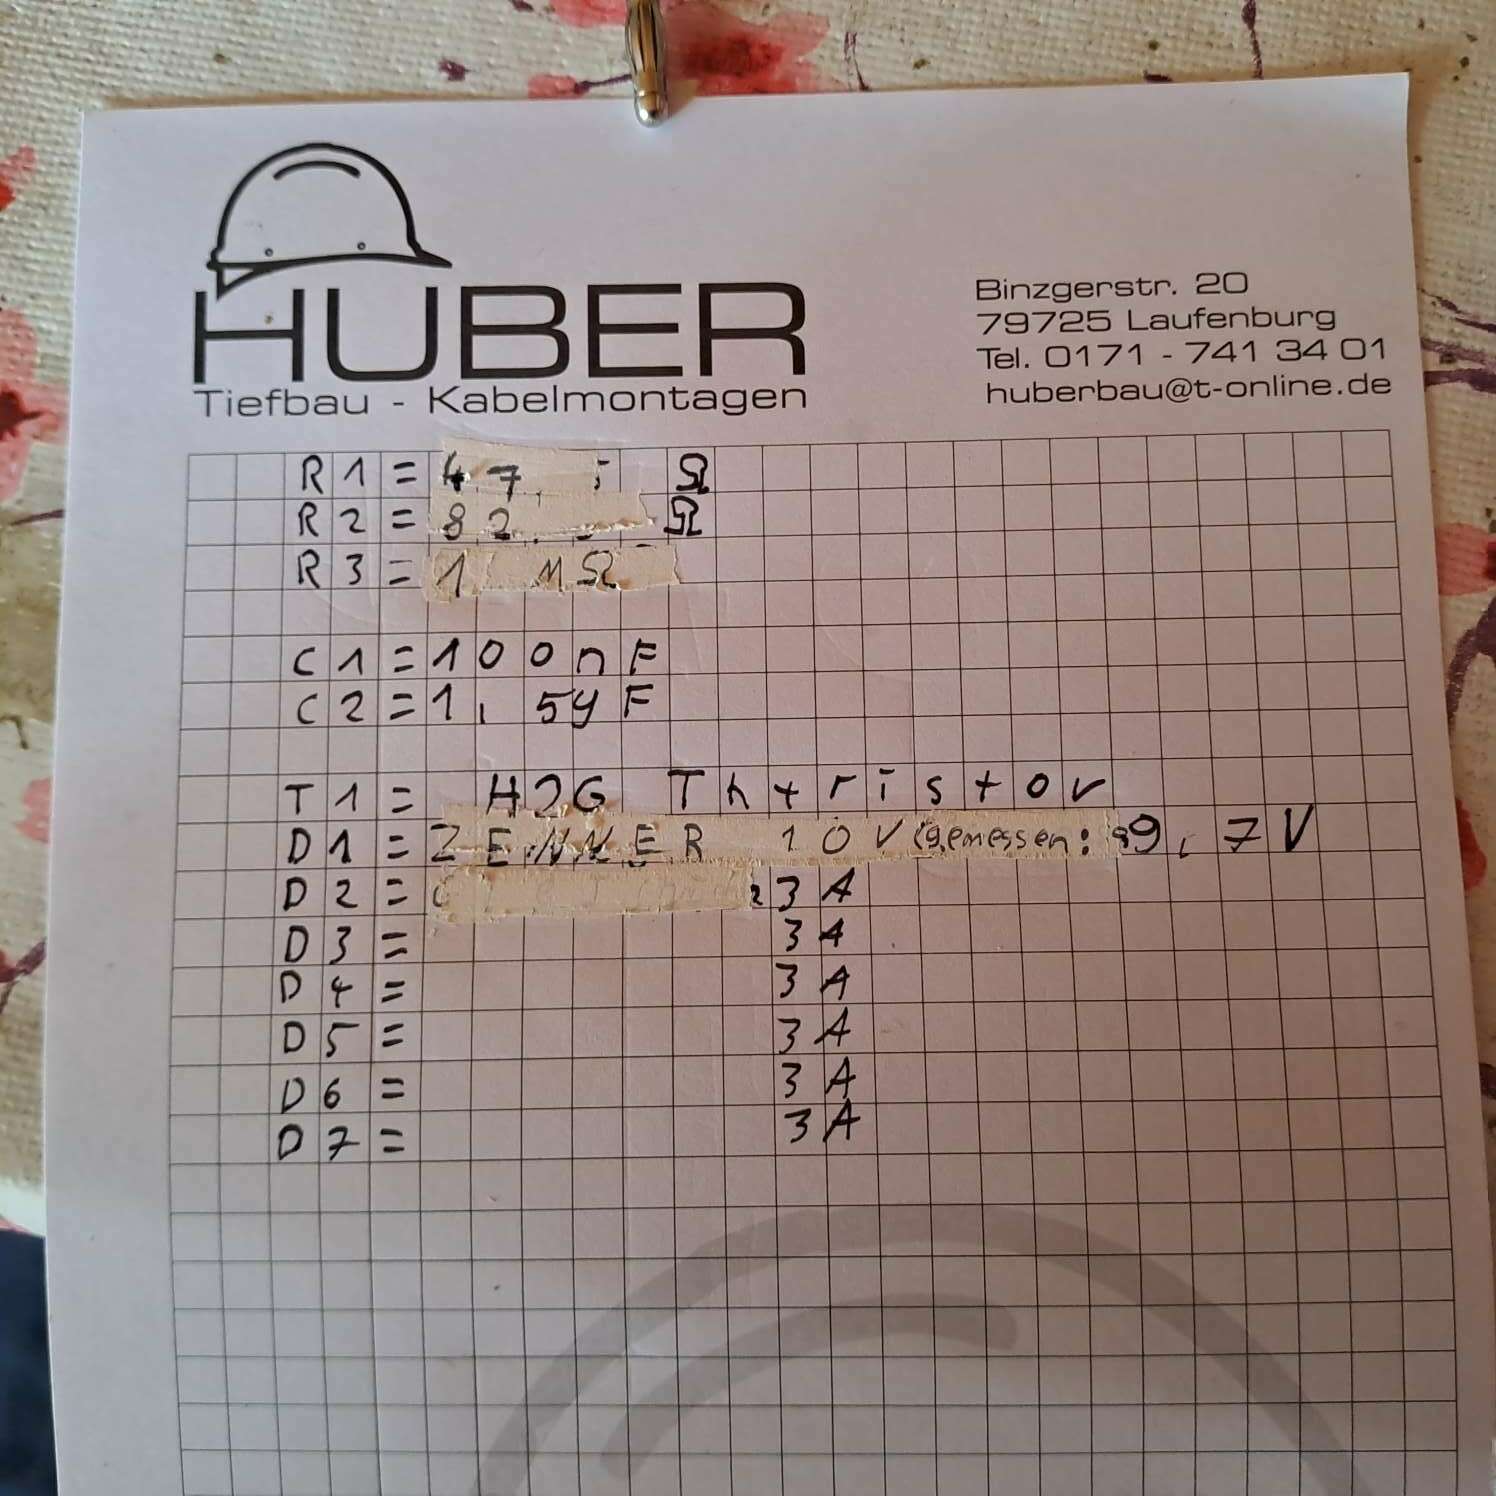 HUBER
Tiefbau - Kabelmontagen
Binzgerstr. 20
79725 Laufenburg
Tel. 0171 - 741 34 01
huberbau@t-online.de
R1 = 47 Ω
R2 = 82 Ω
R3 = 1 MΩ
C1 = 100nF
C2 = 1,5yF
T1 = H2G Thyristor
D1 = ZENNER 10V (gemessen: 9,7V
D2 = 3A
D3 = 3A
D4 = 3A
D5 = 3A
D6 = 3A
D7 = 3A